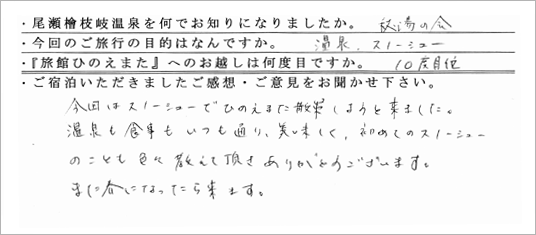 ・尾瀬檜枝岐温泉を何でお知りになりましたか。 秘湯の会
・今回のご旅行の目的はなんですか。 温泉、スノーシュー
・『旅館ひのえまた』へのお越しは何度目ですか。 10度目位
・ご宿泊いただきましたご感想・ご意見をお聞かせ下さい。
今回はスノーシューでひのえまた散策しようと来ました。
温泉も食事もいつも通り、美味しく、初めてのスノーシュー
のことも色々教えて頂きありがとうございます。
また春になったら来ます。